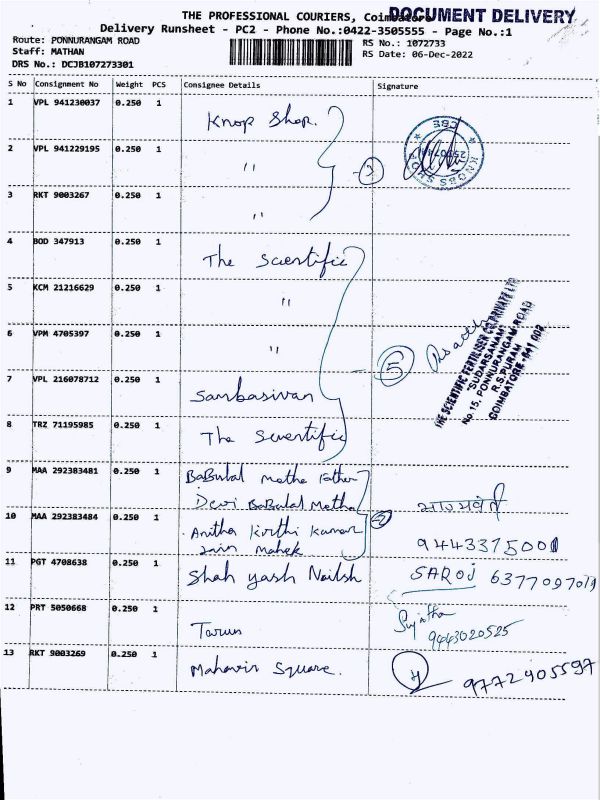 THE PROFESSIONAL COURIERS, Coimbatore
DOCUMENT DELIVERY
Delivery Runsheet - PC2 - Phone No.:0422-3505555 - Page No.:1
Route: PONNURANGAM ROAD
RS No.: 1072733
Staff: MATHAN
RS Date: 06-Dec-2022
DRS No.: DCJB107273301
S No Consignment No Weight PCS Consignee Details Signature
1 VPL 941230037 0.250 1 Knop Shop.
2 VPL 941229195 0.250 1 " 3
3 RKT 9003267 0.250 1 "
4 BOD 347913 0.250 1 The Scientific
5 KCM 21216629 0.250 1 "
6 VPM 4705397 0.250 1 " 5
7 VPL 216078712 0.250 1 Sambasivan
8 TRZ 71195985 0.250 1 The Scientific
THE SCIENTIFIC FERTILISER CO PRIVATE LTD
"SUDARSANAM"
No 15, PONNURANGAM ROAD
R.S.PURAM
COIMBATORE -641 002
9 MAA 292383481 0.250 1 Babulal Motha
Devi Babulal Motha
10 MAA 292383484 0.250 1 Anitha Kirthi Kumar
Jain Mahek
9443375001
11 PGT 4708638 0.250 1 Shah yash Nailsh SAROJ
12 PRT 5050668 0.250 1 Tarun Sujatha
9443020525
13 RKT 9003269 0.250 1 Mahavir Square. 4 9772905597